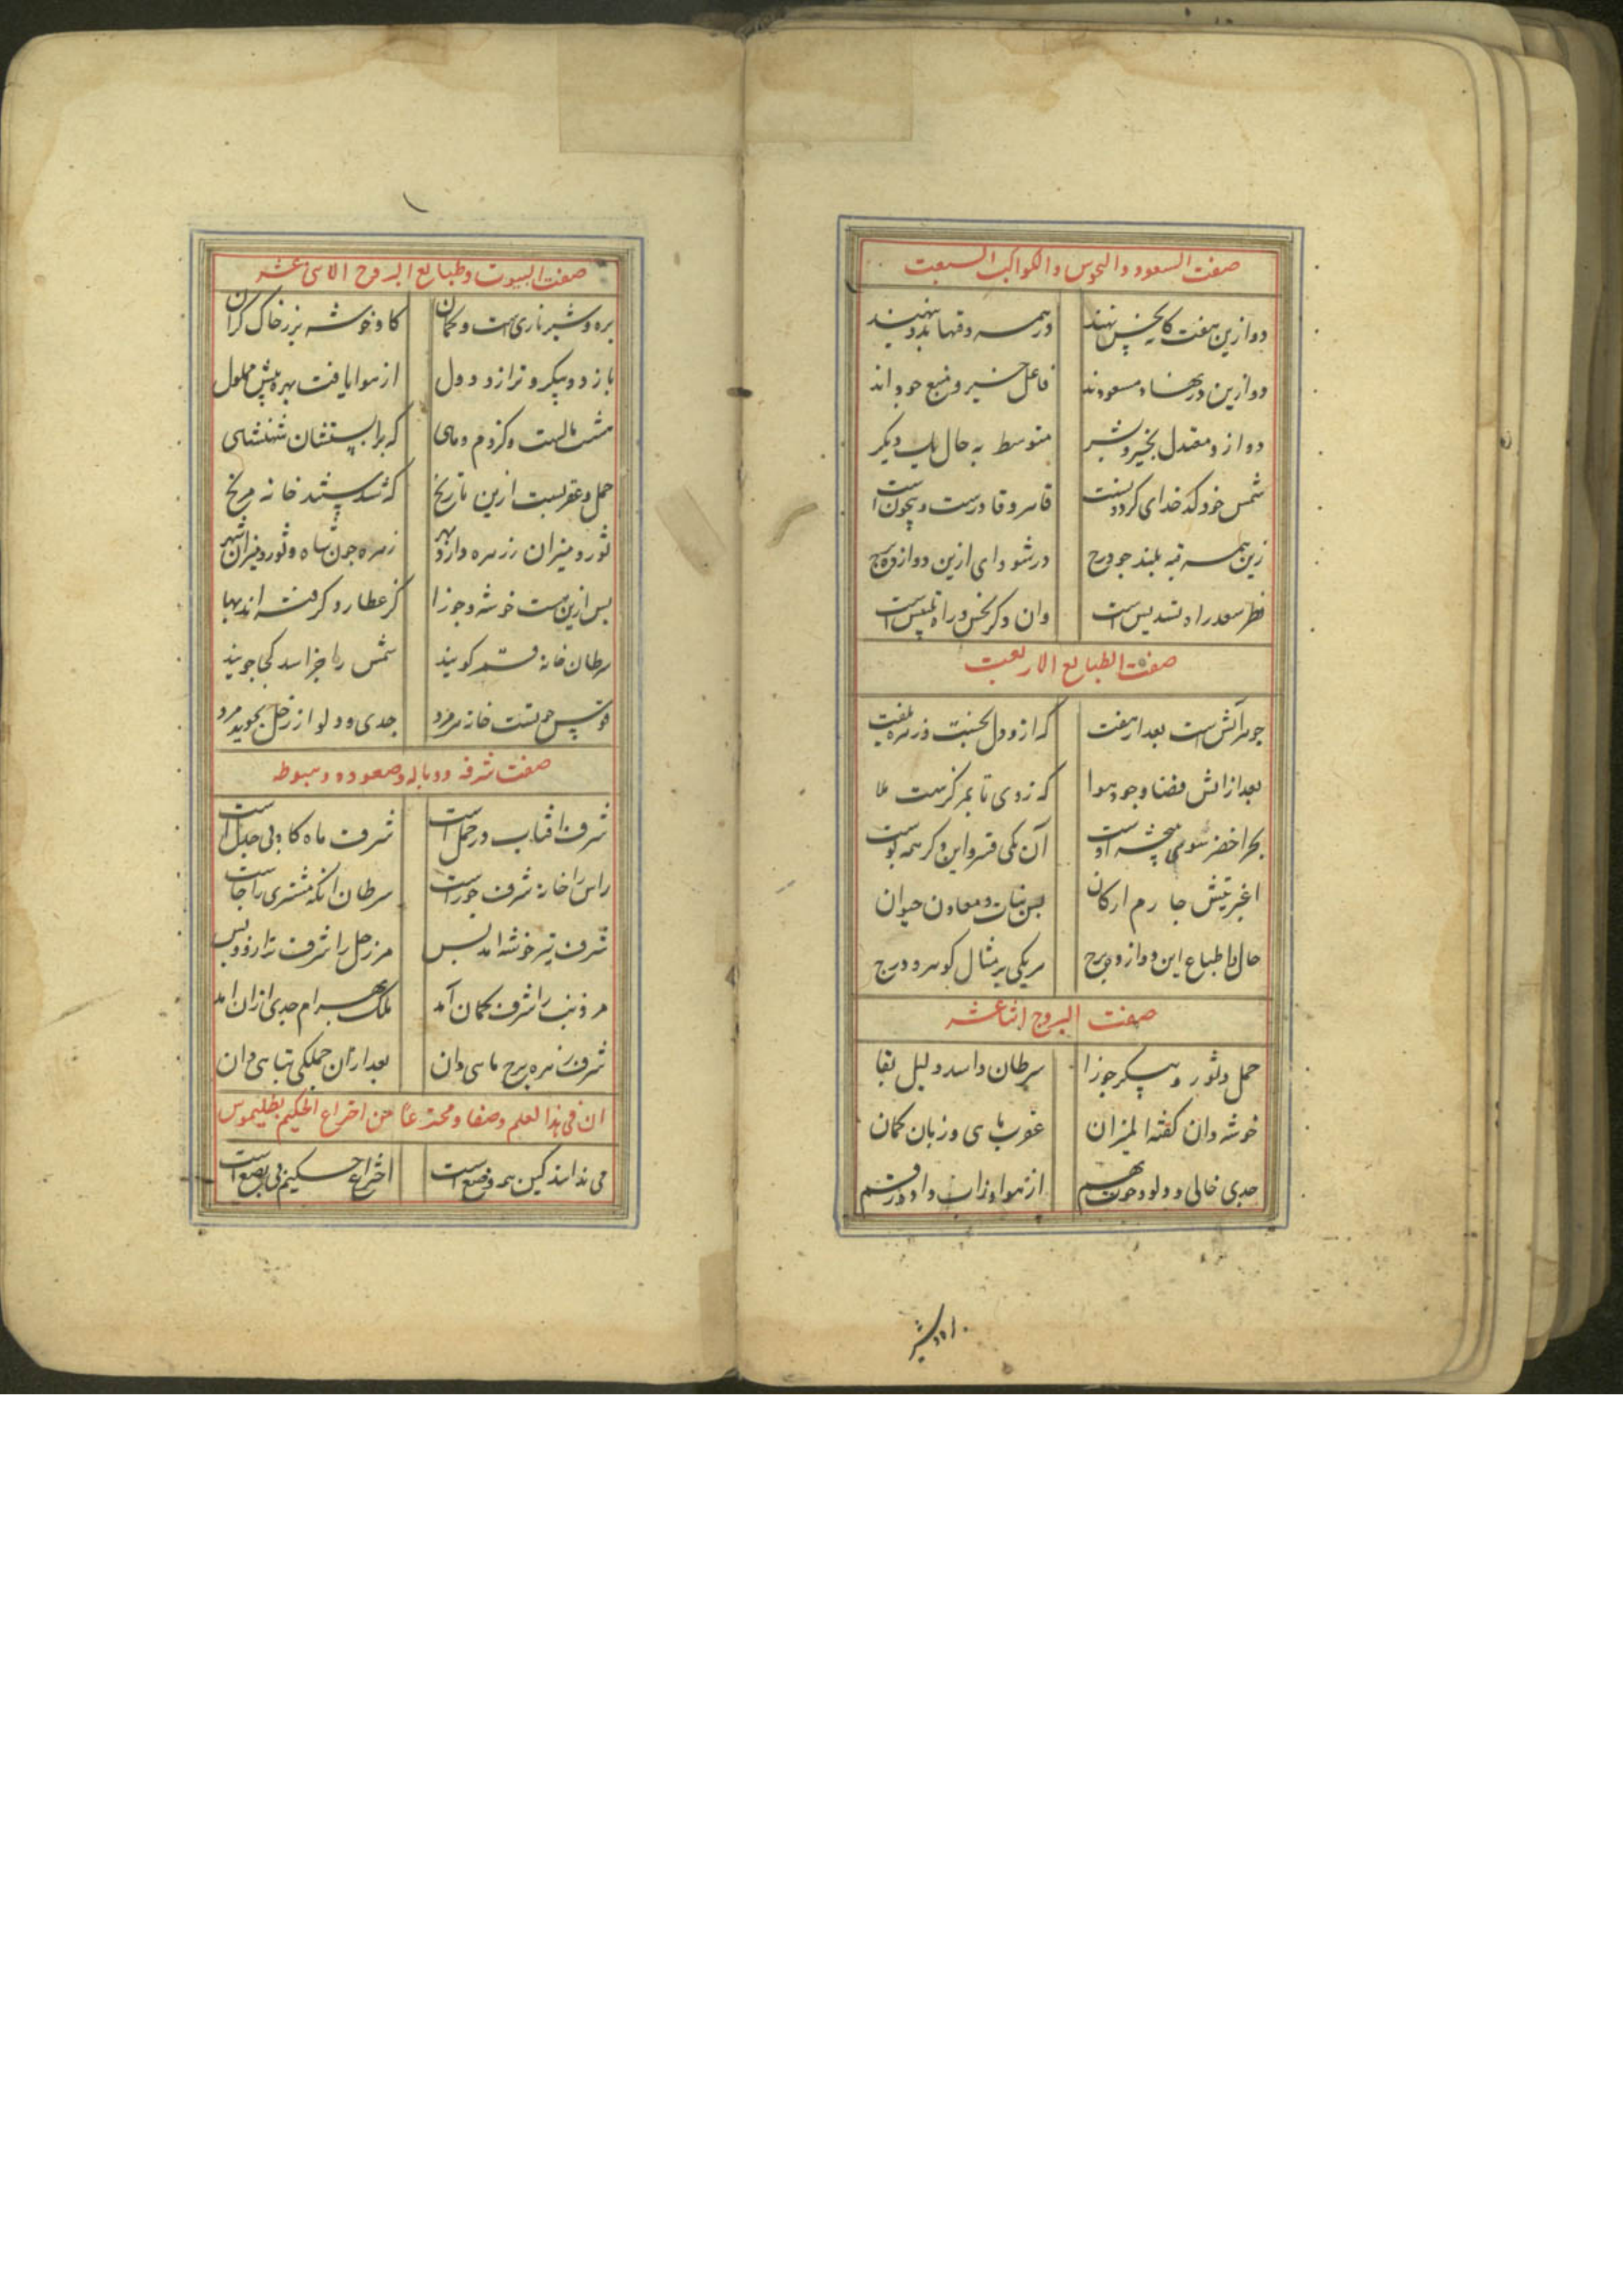 صفت السعود والنحوس والکواکب السبعت
دو ازین هفت کایی نحس نهند در همه وقتها بدو بنهند
دو ازین در نهاد مسعودند فاعل خیر و منبع جود اند
دو ازو معتدل بخیر و بشر متوسط به حال یک دیگر
شمس خود کدخدای کردونست قاهر و قادرست و بیچونست
زین همه قبه بلند جو درج در شود ای ازین دوازده برج
نظر سعد را تسدیس است وان دکر نحس و راه تلبیس است
صفت الطبایع الاربعت
جوهر آتش است بعد از هفت که ازو دل نجست وزهره بتفت
بعد از اتش فضا وجود هوا که زوی تا بمرکزست ملا
بحر اخضر سومی چشمه اوست آن یکی قشر و این دکر همه پوست
اغبر تیش جارم ارکان بس نبات و معادن حیوان
حال با طباع این دوازده برج هر یکی بر مثال کوهر و درج
صفت البروج اثناعشر
حمل و ثور و پیکر جوزا سرطان و اسد دلیل بقا
خوشه دان کفته المیزان عقرب یا سی وزبان کمان
جدی خالی و دلو و حوت بهم از هوا وزاب داده رقم
اردشیر
صفت البیوت وطبایع البروج الاثنی عشر
بره و شیر ناری است و کمان کاو و خوشه بزر خاک کران
باز دوپیکر و ترازو و دول از هوا یافت بهره پیش ملول
هشت کزدم و ماهی که برابستشان شهنشاهی
حمل و عقربست ازین تاریخ که شد خانه مریخ
ثور و میزان ززهره دارد بهر زهره جون شاه و ثور و میزان شهر
بس ازین هست خوشه و جوزا کز عطارد کرفته اند بها
سرطان خانه قمر کویند شمس را جز اسد کجا جویند
قوس حوتست خانه هرمزد جدی و دلو از زحل بجوید مزد
صفت شرفه ووباله وصعوده وهبوطه
شرف افتاب در حمل است شرف ماه کاو بی جدل است
راس را خانه شرف جوزاست سرطان انکه مشتری را جاست
شرف تیر خوشه امد بس مر زحل را شرف ترازو و بس
مر ذنب را شرف کمان آمد ملک بهرام جدی ازان امد
شرف زهره برج ماهی دان بعد ازان جملکی تباهی دان
ان فی هذا لعلم وصفا ومخترعا من اختراع الحکیم بطلیموس
می ندانند کین همه وضع است اختراع حکیم بی بضع است